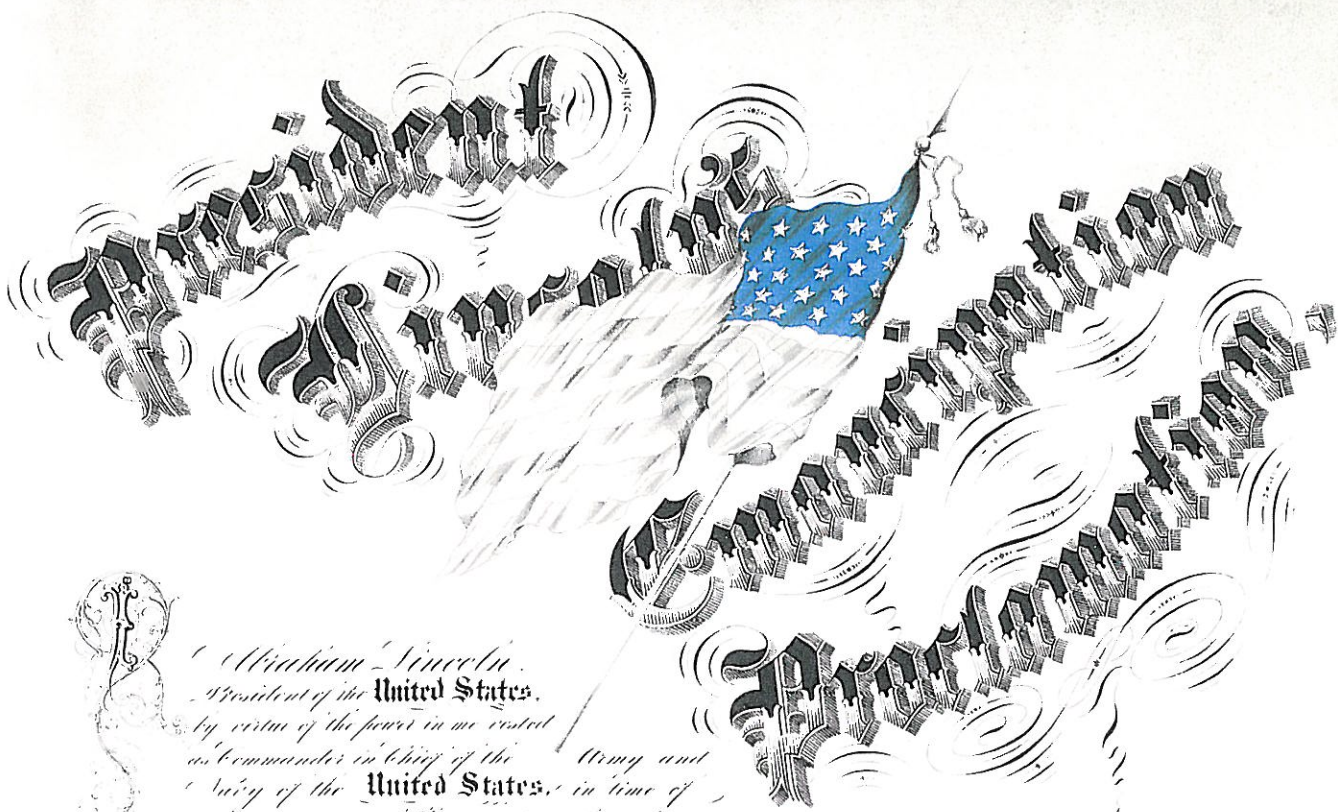 President
Lincoln's
Emancipation
Proclamation.
I Abraham Lincoln.
President of the United States,
by virtue of the power in me vested
as Commander in Chief of the Army and
Navy of the United States, in time of